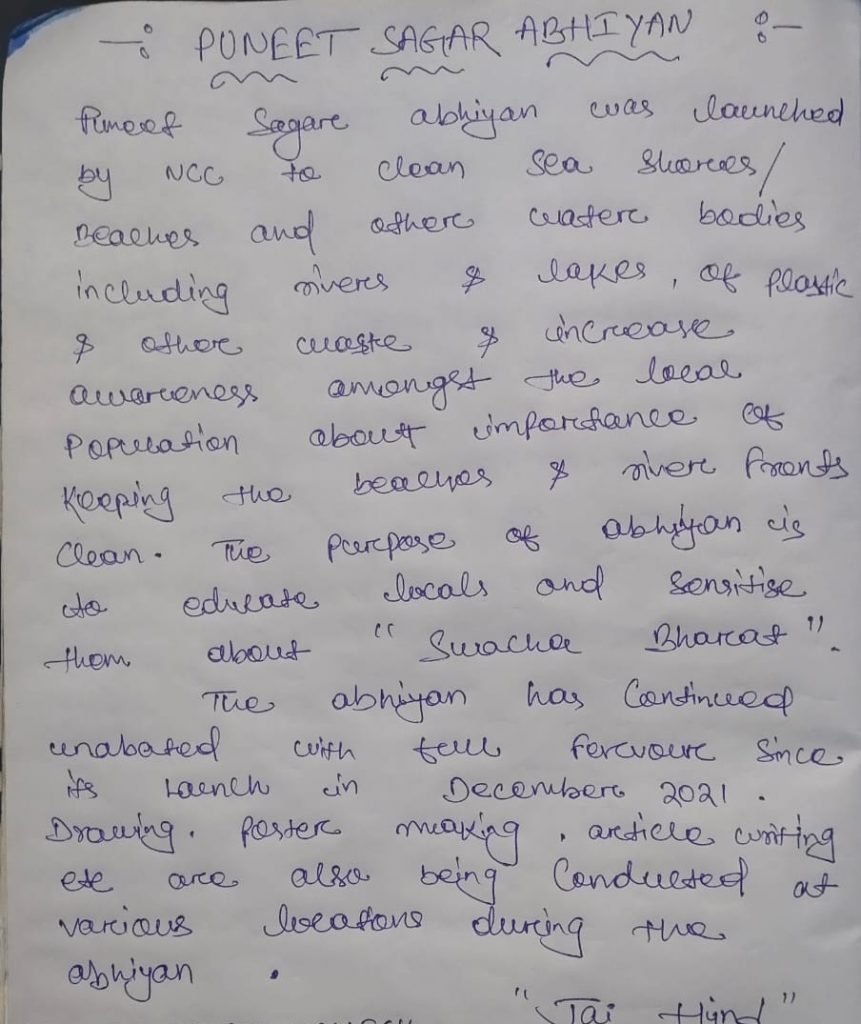 —: PUNEET SAGAR ABHIYAN :—
Puneet Sagar abhiyan was launched
by NCC to clean sea shores/
Beaches and other water bodies
including rivers & lakes, of plastic
& other waste & increase
awareness amongst the local
Population about importance of
Keeping the beaches & river fronts
Clean. The purpose of abhiyan is
to educate locals and sensitise
them about "Swacha Bharat".
The abhiyan has Continued
unabated with full fervour since
its Launch in December 2021.
Drawing, Poster making, article writing
etc are also being Conducted at
various locations during the
abhiyan.
"Jai Hind"